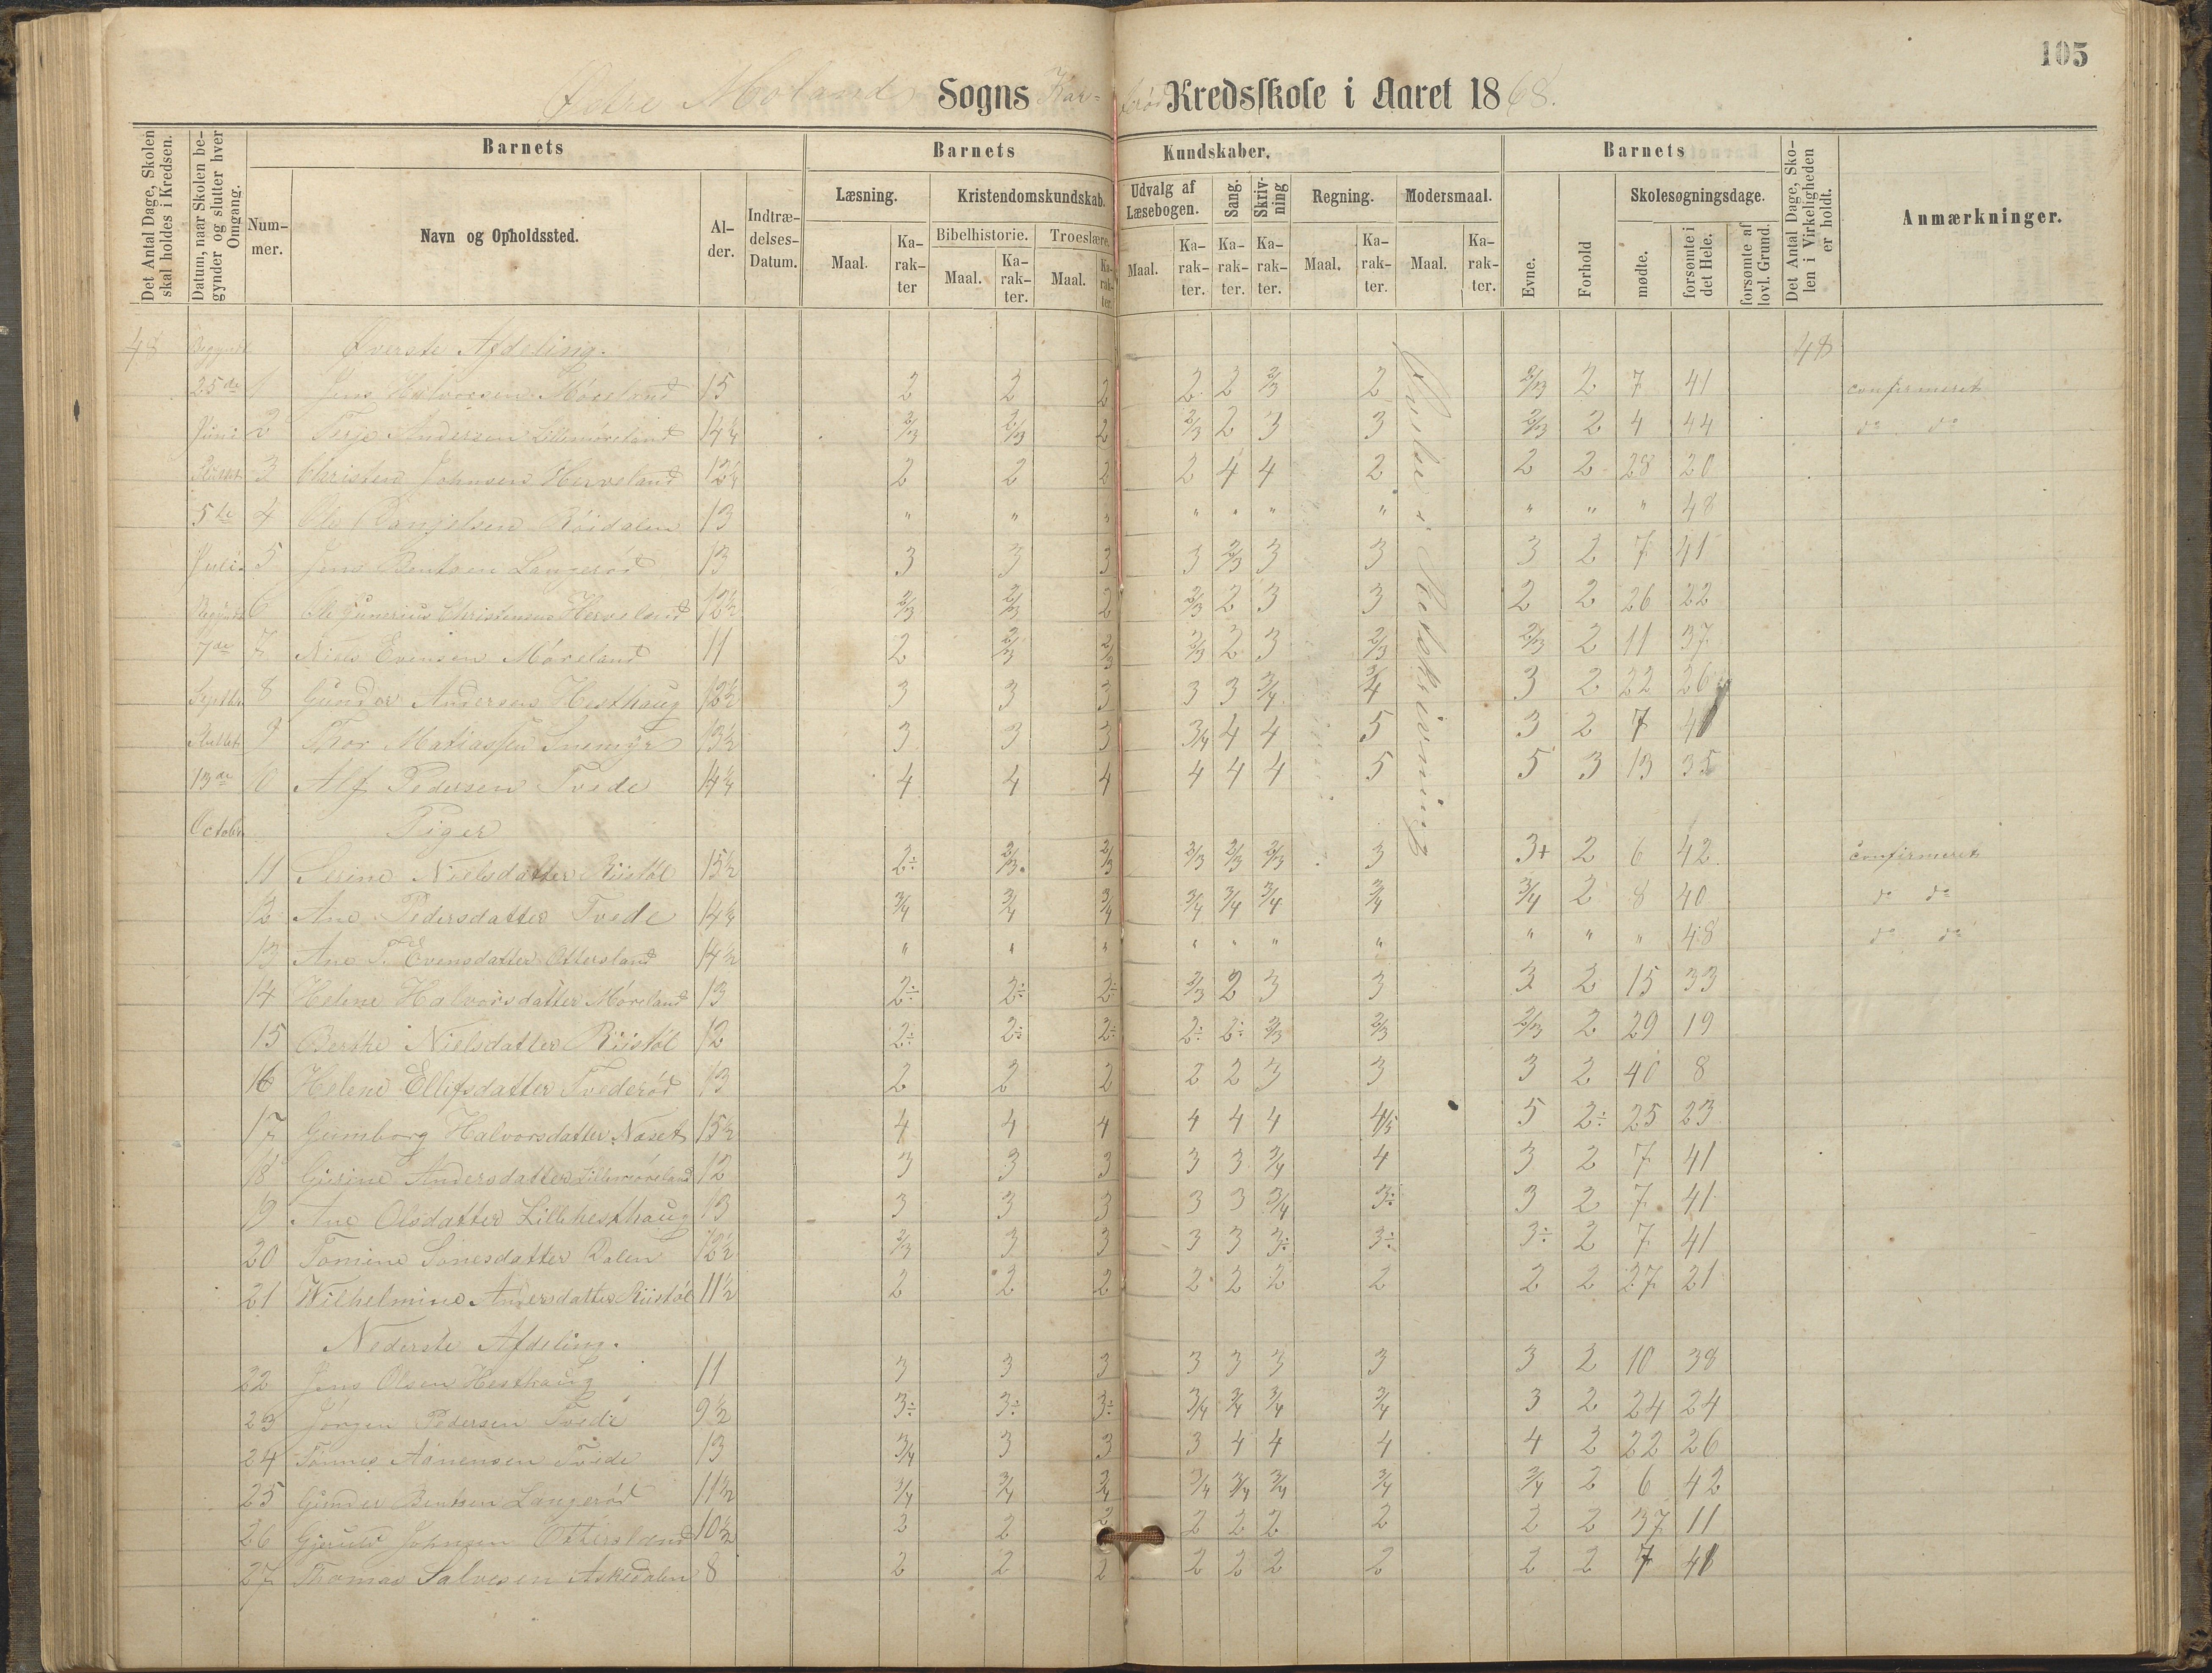 105
Østre Molands Sogns Kar- Kredsskole i Aaret 1868.
Det Antal Dage, Skolen skal holdes i Kredsen.
Datum, naar Skolen begynder og slutter hver Omgang.
Barnets
Barnets Kundskaber.
Barnets
Det Antal Dage, Skolen i Virkeligheden er holdt.
Anmærkninger.
Nummer.
Navn og Opholdssted.
Alder.
Indtrædelses-Datum.
Læsning.
Kristendomskundskab.
Udvalg af Læsebogen.
Sang.
Skrivning
Regning.
Modersmaal.
Evne.
Forhold
Skolesøgningsdage.
Bibelhistorie.
Troeslære.
Maal.
Karakter
Maal.
Karakter.
Maal.
Karakter.
Maal.
Karakter.
Karakter.
Karakter.
Maal.
Karakter.
Maal.
Karakter.
mødte.
forsømte i det Hele.
forsømte af lovl. Grund.
48 Begyndt Øverste Afdeling. 48
25de 1 Jens Halvorsen Møreland 15 2 2 2 2 2 2/3 2 2/3 2 7 41 confirmeret
Juni 2 Terje Andersen Lillemøreland 14¼ 2/3 2/3 2 2/3 2 3 3 2/3 2 4 44 do do
3 Christen Johnsen Herveland 12¼ 2 2 2 2 4 4 2 2 2 28 20
5te 4 Ole Danjelsen Röidalen 13 " " " " " " " " " " 48
Juli 5 Jens Bentsen Langerød 13 3 3 3 3 2/3 3 3 3 2 7 41
Begyndt 6 Ole Gumerius Christensen Herveland 12½ 2/3 2/3 2 2/3 2 3 3 2 2 26 22
7de 7 Niels Evensen Møreland 11 2 2/3 2/3 2/3 2 3 2/3 2/3 2 11 37
Septbr 8 Gunder Andersen Hesthaug 12½ 3 3 3 3 3 3/4 3/4 3 2 22 26
Sluttet 9 Thor Mathiassen Snemyr 13½ 3 3 3 3/4 4 4 5 3 2 7 41
13de 10 Alf Pedersen Tvede 14¼ 4 4 4 4 4 4 5 5 3 13 35
Øvelse i Retskrivning
October Piger
11 Serine Nielsdatter Riistøl 15½ 2÷ 2/3 2/3 2/3 2/3 2/3 3 3+ 2 6 42 confirmeret
12 Ane Pedersdatter Tvede 14¼ 3/4 3/4 3/4 3/4 3/4 3/4 3/4 3/4 2 8 40 do do
13 Ane T. Evensdatter Ottersland 14½ " " " " " " " " " " 48 do do
14 Helene Halvorsdatter Møreland 13 2÷ 2÷ 2÷ 2/3 2 3 3 3 2 15 33
15 Berthe Nielsdatter Riistøl 12 2÷ 2÷ 2÷ 2÷ 2÷ 2/3 2/3 2/3 2 29 19
16 Helene Ellefsdatter Tvederød 13 2 2 2 2 2 3 3 3 2 40 8
17 Gumborg Halvorsdatter Næset 15½ 4 4 4 4 4 4 4/5 5 2÷ 25 23
18 Gurine Andersdatter Lillemøreland 12 3 3 3 3 3 3/4 4 3 2 7 41
19 Ane Olsdatter Lillehesthaug 13 3 3 3 3 3 3/4 3÷ 3 2 7 41
20 Tomine Sonesdatter Dalen 12½ 2/3 3 3 3 3 3÷ 3÷ 3÷ 2 7 41
21 Wilhelmine Andersdatter Riistøl 11½ 2 2 2 2 2 2 2 2 2 27 21
Nederste Afdeling.
22 Jens Olsen Hesthaug 11 3 3 3 3 3 3 3 3 2 10 38
23 Jørgen Pedersen Tvede 9½ 3÷ 3÷ 3÷ 3/4 3/4 3/4 3/4 3 2 24 24
24 Tønnes Aanensen Tvede 13 3/4 3 3 3 4 4 4 4 2 22 26
25 Gunder Bentsen Langerød 11½ 3/4 3/4 3/4 3/4 3/4 3/4 3/4 3/4 2 6 42
26 Gjeruld Johnsen Ottersland 10½ 2 2 2 2 2 2 2 2 2 37 11
27 Thomas Salvesen Askedalen 8 2 2 2 2 2 2 2 2 2 7 41